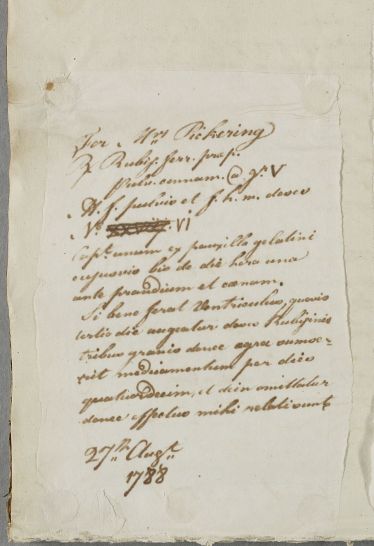 For Mrs Pickering
℞ Rubig. ferr. ppt.
Pulv. cinnam. @ gr. V
M. f. pulvis et f. h. m. doses
No. VI
Capt. unam ex pauxillo gelatini
cujusvis bis de die hora una
ante prandium et cœnam.
Si bene ferat Ventriculus, quovis
tertio die augeatur dosis Rubiginis
tribus granis donec ægra sumse-
rit medicamentum per dies
quatuordecim, et dein omittatur
donec effectus mihi relati sunt
27th Augt.
1788